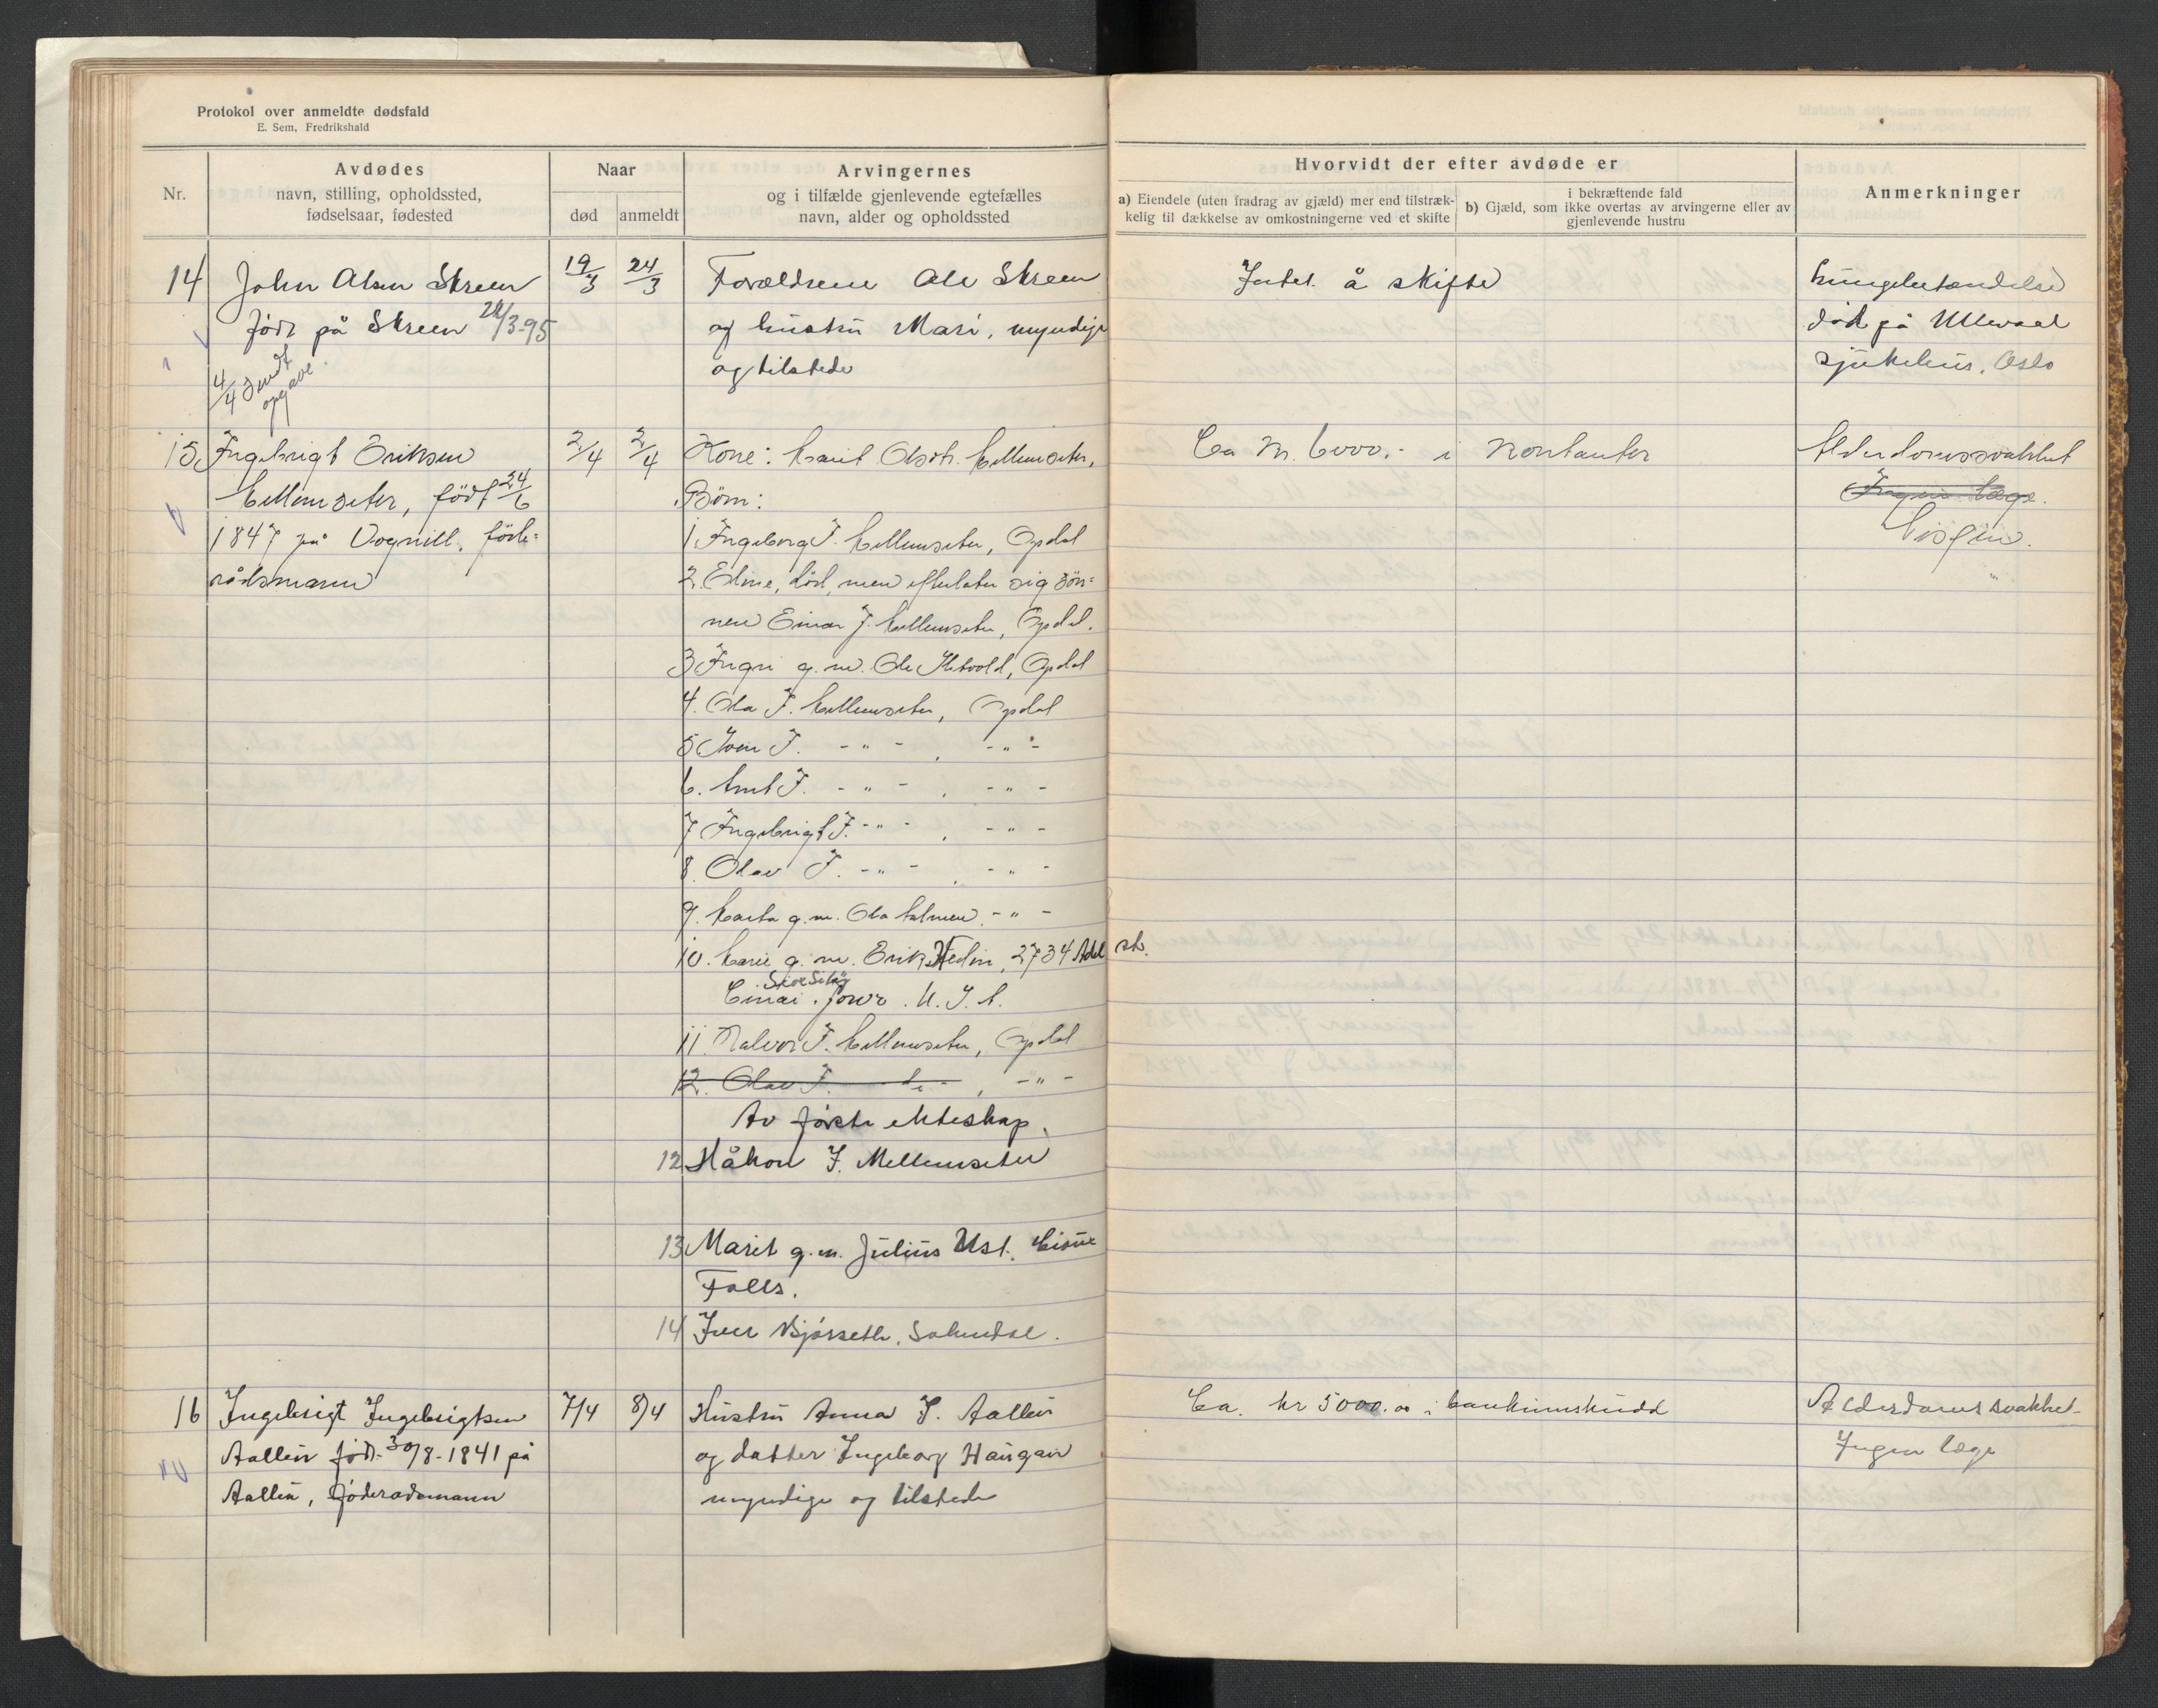 Protokol over anmeldte dødsfald
E. Sem, Fredrikshald
Nr.
Avdødes
navn, stilling, opholdssted,
fødselsaar, fødested
Naar
død
anmeldt
Arvingernes
og i tilfælde gjenlevende egtefælles
navn, alder og opholdssted
Hvorvidt der efter avdøde er
a) Eiendele (uten fradrag av gjæld) mer end tilstræk-
kelig til dækkelse av omkostningerne ved et skifte
i bekræftende fald
b) Gjæld, som ikke overtas av arvingerne eller av
gjenlevende hustru
Anmerkninger
14
John Olsen Skreen
født på Skreen 22/3-95
4/4 Sendt
opgave.
19/3
24/3
Forældrene Ole Skreen
og hustru Mari, myndige
og tilstede
Intet å skifte
Lungebetændelse
død på Ullevaal
sjukehus, Oslo
15
Ingebrigt Eriksen
Mellemseter, født 24/6
1847 på Vognill, føde=
rådsmann
2/4
2/4
Kone: Marit Olsdt. Mellemseter,
Børn:
1. Ingeborg I. Mellemseter, Opdal
2. Eline, død, men efterlater sig søn=
nen Einar J. Mellemseter, Opdal.
3 Ingri g. m. Ole Hevold, Opdal
4. Ola I. Mellemseter, Opdal
5 Iver I. - " - , - " -
6. Arnt I. - " - , - " -
7 Ingebrigt I. - " - , - " -
8. Olav I. - " - , - " -
9. Marta g. m. Ola Halmen - " -
10. Marie g. m. Erik Hedin, 2734 Adel str.
Sioe Sity
Iowa. U. S. A.
11. Halvor I. Mellemseter, Opdal
12. Olav I. - " - , - " -
Av første ekteskap.
12 Håkon I. Mellemseter
13 Marit g. m. Julius Ust.
Falls.
14 Iver Bjørseth, Soknedal.
Ca kr. 6000.- i kontanter
Alderdomssvakhet
Ingen læge.
Misfjord.
16
Ingebrigt Ingebrigtsen
Aalbu født 30/8-1841 på
Aalbu, føderådsmann
7/4
8/4
Hustru Anna I. Aalbu
og datter Ingeborg Haugan
myndige og tilstede
Ca. kr 5000.00 i bankinnskudd
Alderdomssvakhet
Ingen læge